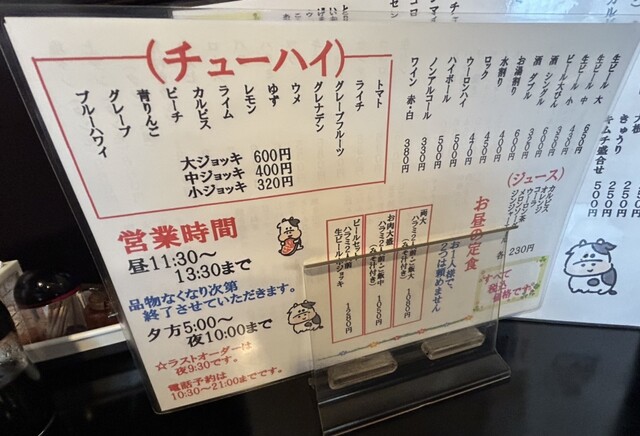 生ビール 大
生ビール 中 650
ビール 小 430
ビール大びん
酒 シングル 350
酒 ダブル 600
お湯割り 400
水割り 400
ロック 450
ウーロンハイ 470
ハイボール 500円
ノンアルコール 330円
ワイン 赤・白 380円
(チューハイ)
トマト
ライチ
グレープフルーツ
グレナデン
ウメ
ゆず
レモン
ライム
カルピス
ピーチ
青りんご
グレープ
ブルーハワイ
大ジョッキ 600円
中ジョッキ 400円
小ジョッキ 320円
(ジュース)
カルピス
オレンジ
コーラ
ウーロン茶
メロンソーダ
ジンジャー
各 230円
すべて
税込
価格です。
お昼の定食
お一人様で、
2つは頼めません
両大
1050円
お肉大盛
1050円
ビールセット
ハラミ
生ビール ジョッキ
1280円
営業時間
昼11:30～
13:30まで
品物なくなり次第
終了させていただきます。
夕方5:00～
夜10:00まで
☆ラストオーダーは
夜9:30です。
電話予約は
10:30～21:00までです。
きゅうり 250
キムチ盛合せ 500円
250円
500円